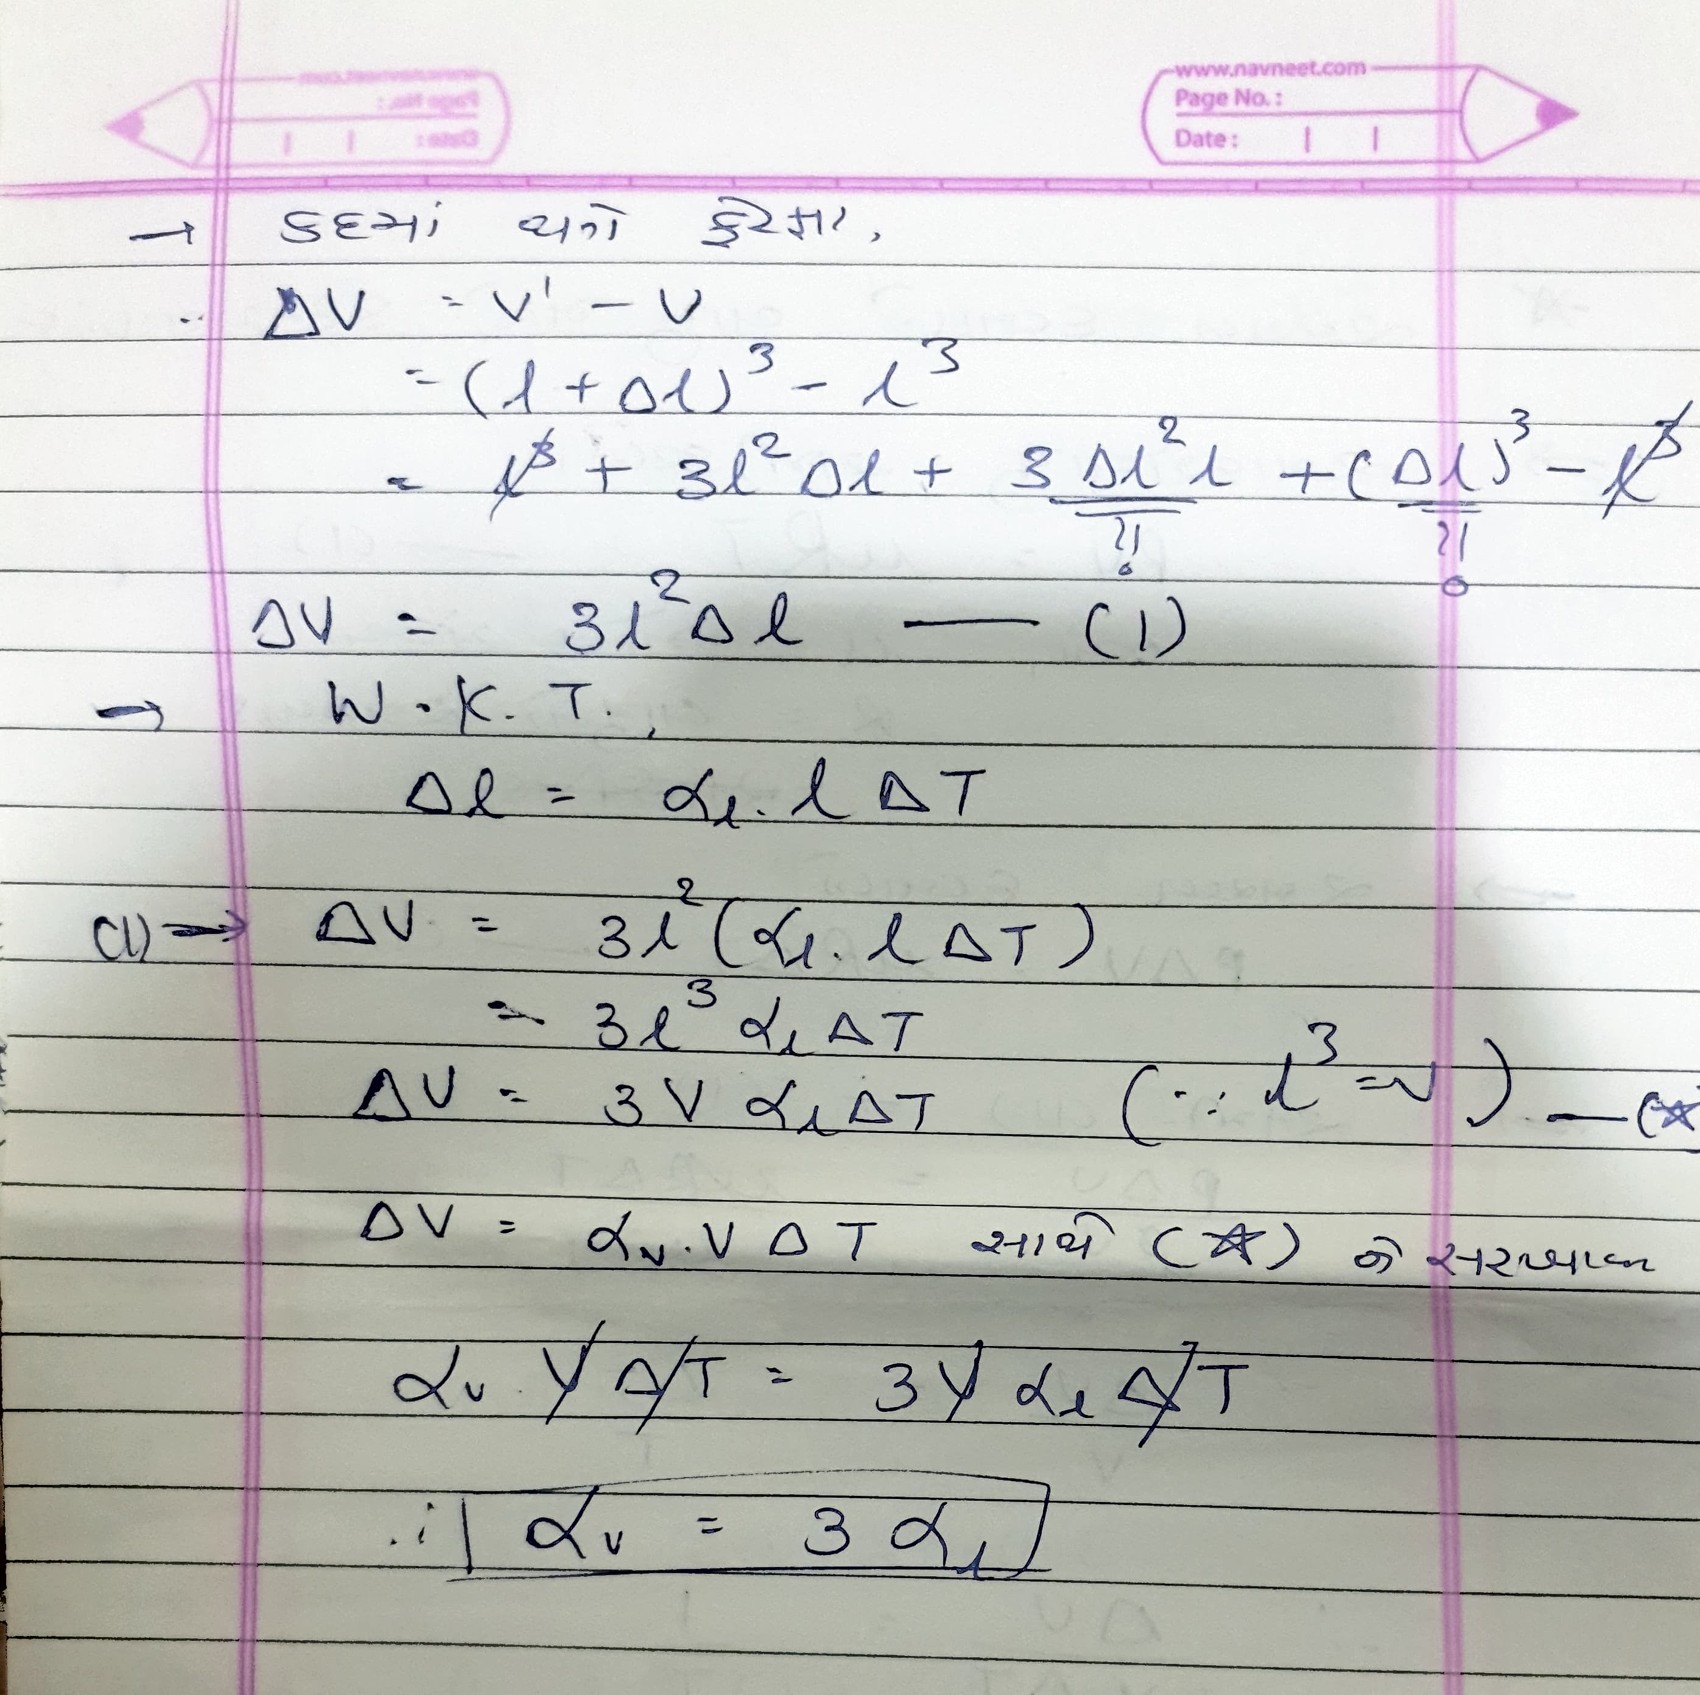 www.navneet.com
Page No. :
Date :
→ કદમાં થતો ફેરફાર,
∴ ΔV = V' - V
= (l + Δl)³ - l³
= l³ + 3l²Δl + 3Δl²l + (Δl)³ - l³
ΔV = 3l²Δl —— (1)
→ W.K.T.,
Δl = αl. l ΔT
(1) → ΔV = 3l² (αl. l ΔT)
= 3l³ αl ΔT
ΔV = 3V αl ΔT (∵ l³ = V) — (☆)
ΔV = αv. V ΔT સાથે (☆) ને સરખાવતા
αv. V ΔT = 3V αl ΔT
∴ αv = 3 αl